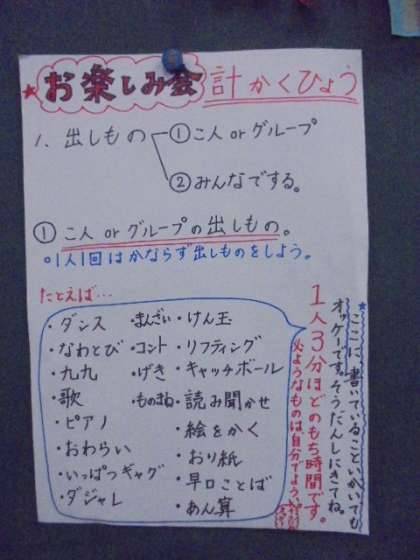 お楽しみ会 計かくひょう
1. 出しもの
①こ人 or グループ
②みんなでする。
① こ人 or グループの出しもの。
○1人1回はかならず出しものをしよう。
たとえば…
・ダンス
・なわとび
・九九
・歌
・ピアノ
・おわらい
・いっぱつギャグ
・ダジャレ
・まんざい
・コント
・げき
・ものまね
・けん玉
・リフティング
・キャッチボール
・読み聞かせ
・絵をかく
・おり紙
・早口ことば
・あん算
ここに書いていることいがいでも
オッケーです。そうだんしにきてね。
1人3分ほどのもち時間です。
必ようなものは、自分でようい